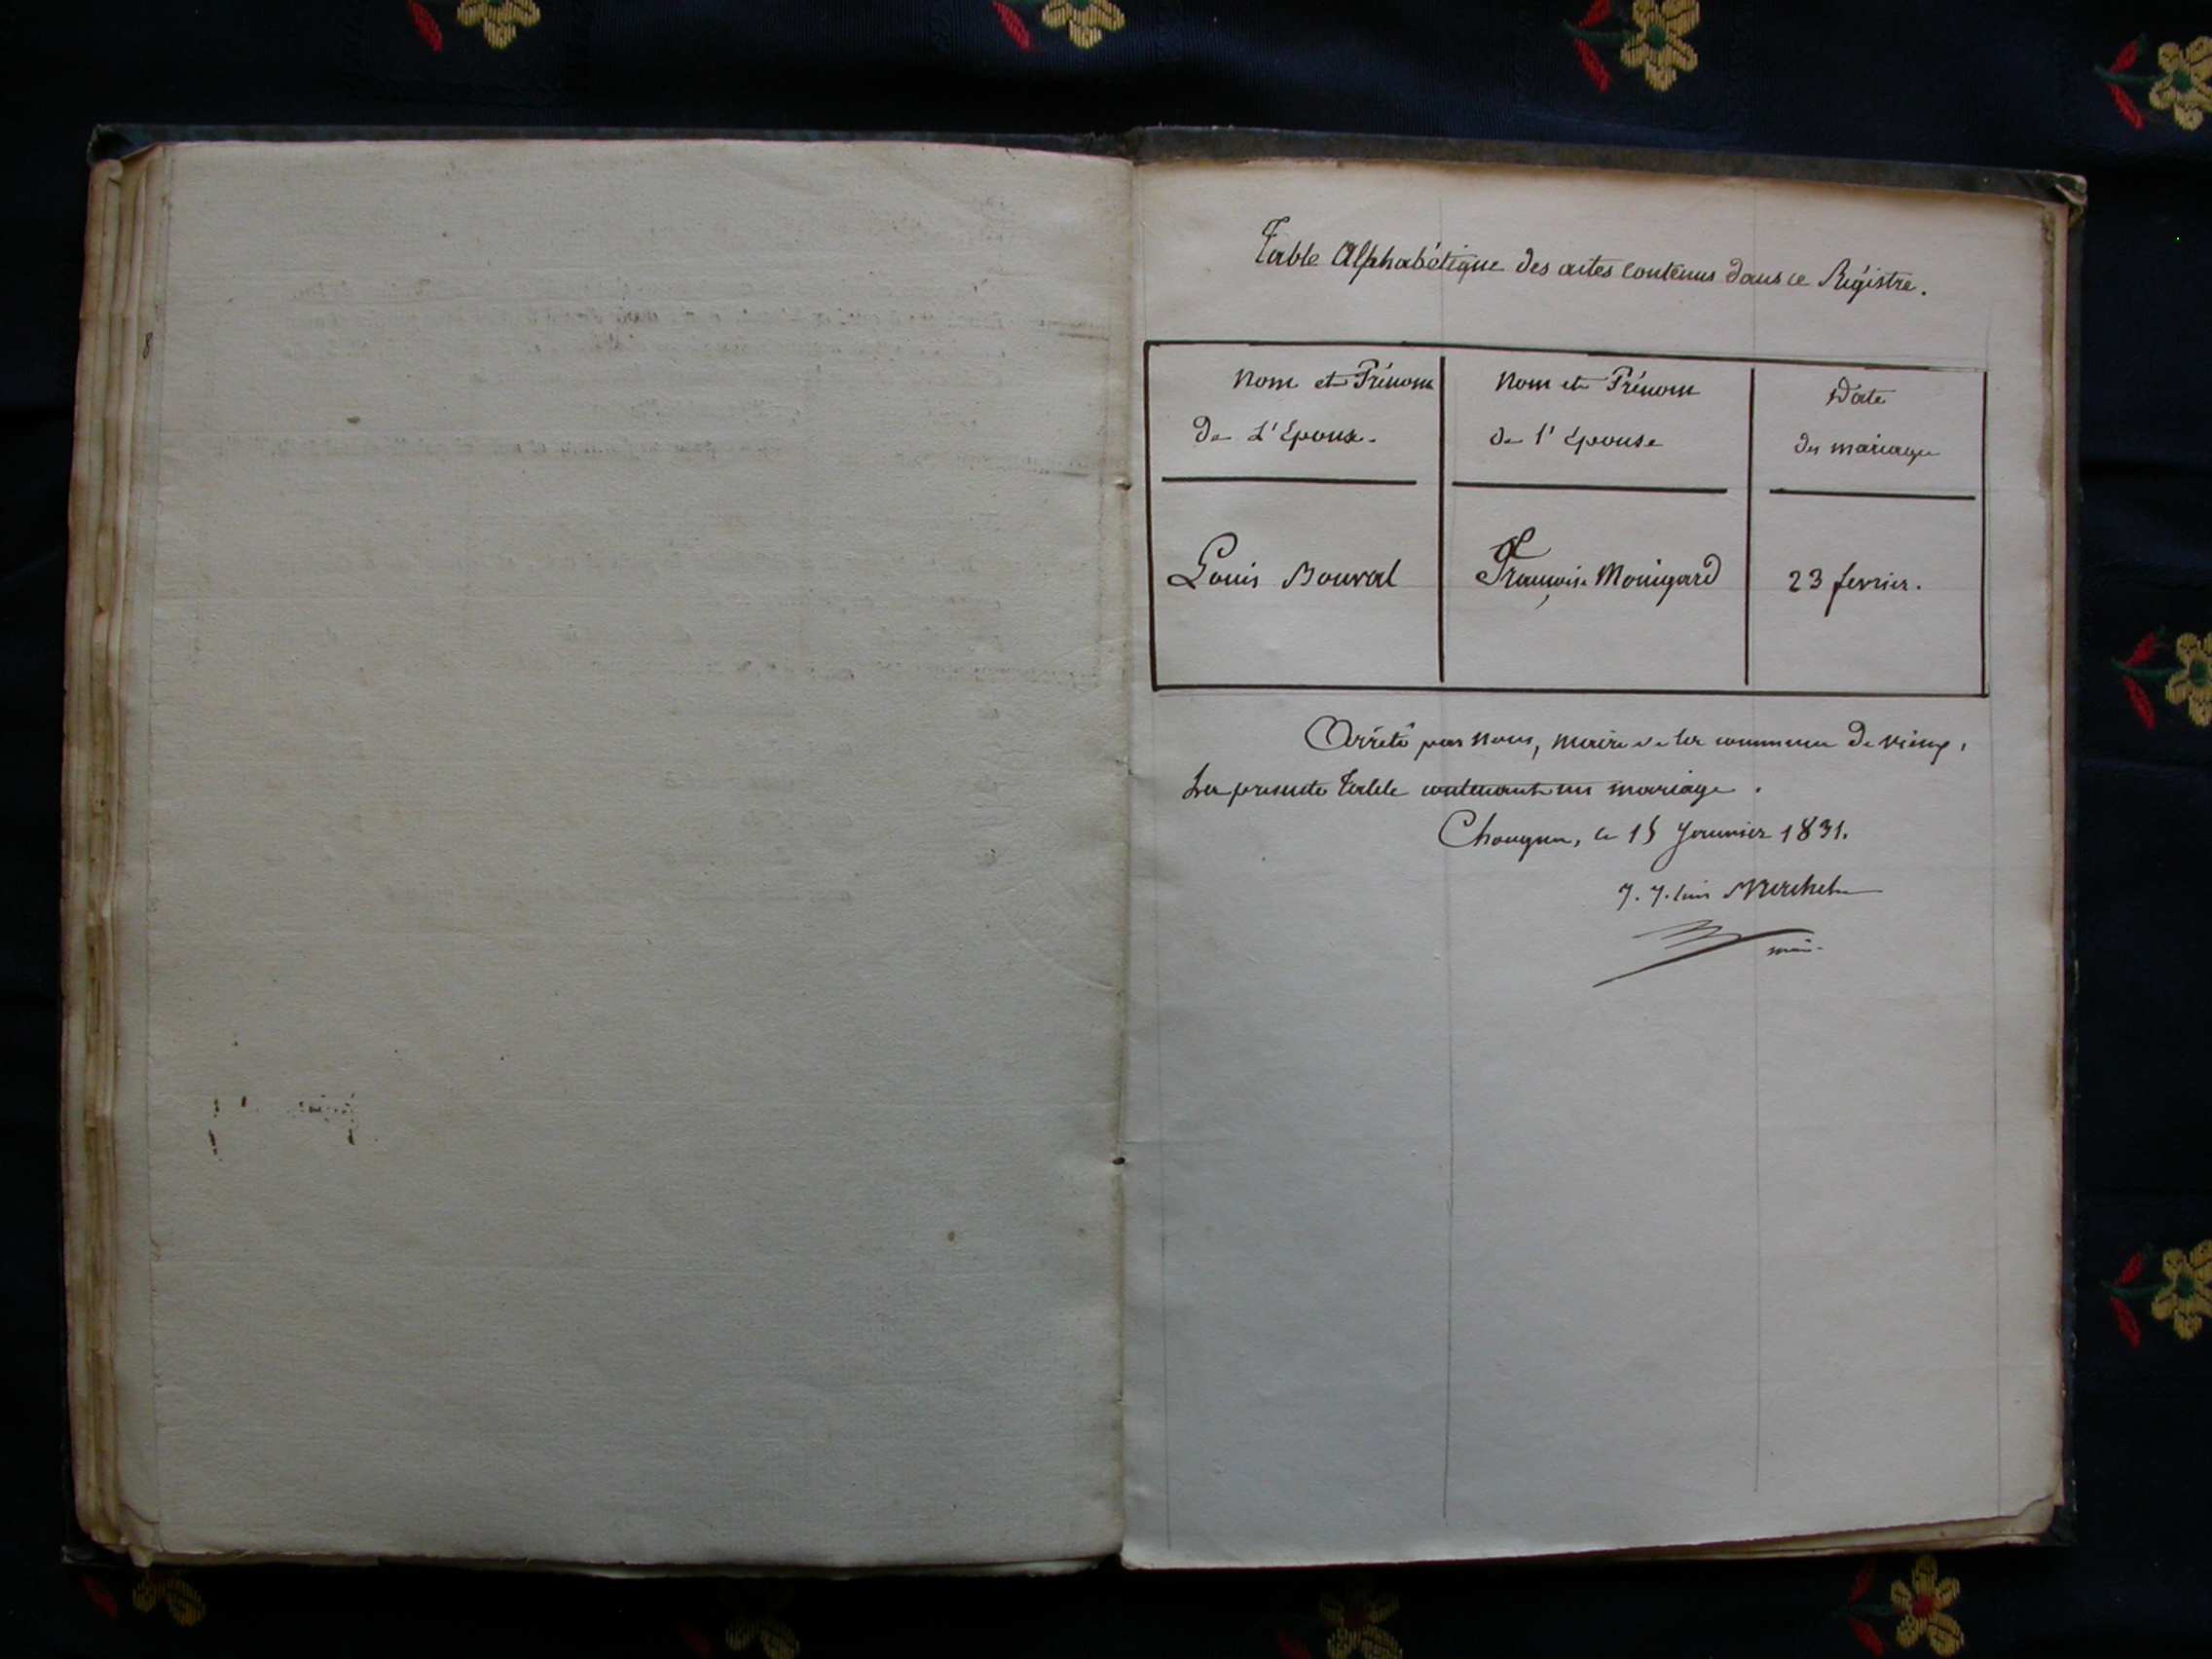 Table Alphabétique des actes contenus dans ce Régistre.
Nom et Prénom
de L'Epoux.
Nom et Prénom
de l'épouse
Date
du mariage
Louis Bouval
Françoise Monigard
23 fevrier.
Arrêté par nous, maire de la commune de
La presente Table contenant un mariage.
le 15 Janvier 1831.
J. J. Merchet
maire
8